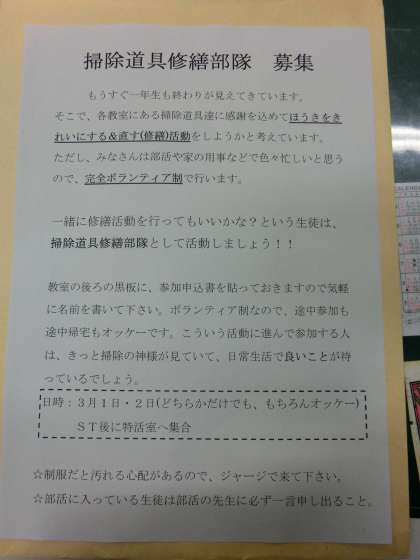 掃除道具修繕部隊　募集
もうすぐ一年生も終わりが見えてきています。
そこで、各教室にある掃除道具達に感謝を込めてほうきをき
れいにする＆直す(修繕)活動をしようかと考えています。
ただし、みなさんは部活や家の用事などで色々忙しいと思う
ので、完全ボランティア制で行います。
一緒に修繕活動を行ってもいいかな？という生徒は、
掃除道具修繕部隊として活動しましょう！！
教室の後ろの黒板に、参加申込書を貼っておきますので気軽
に名前を書いて下さい。ボランティア制なので、途中参加も
途中帰宅もオッケーです。こういう活動に進んで参加する人
は、きっと掃除の神様が見ていて、日常生活で良いことが待
っているでしょう。
日時：３月１日・２日(どちらかだけでも、もちろんオッケー)
ＳＴ後に特活室へ集合
☆制服だと汚れる心配があるので、ジャージで来て下さい。
☆部活に入っている生徒は部活の先生に必ず一言申し出ること。